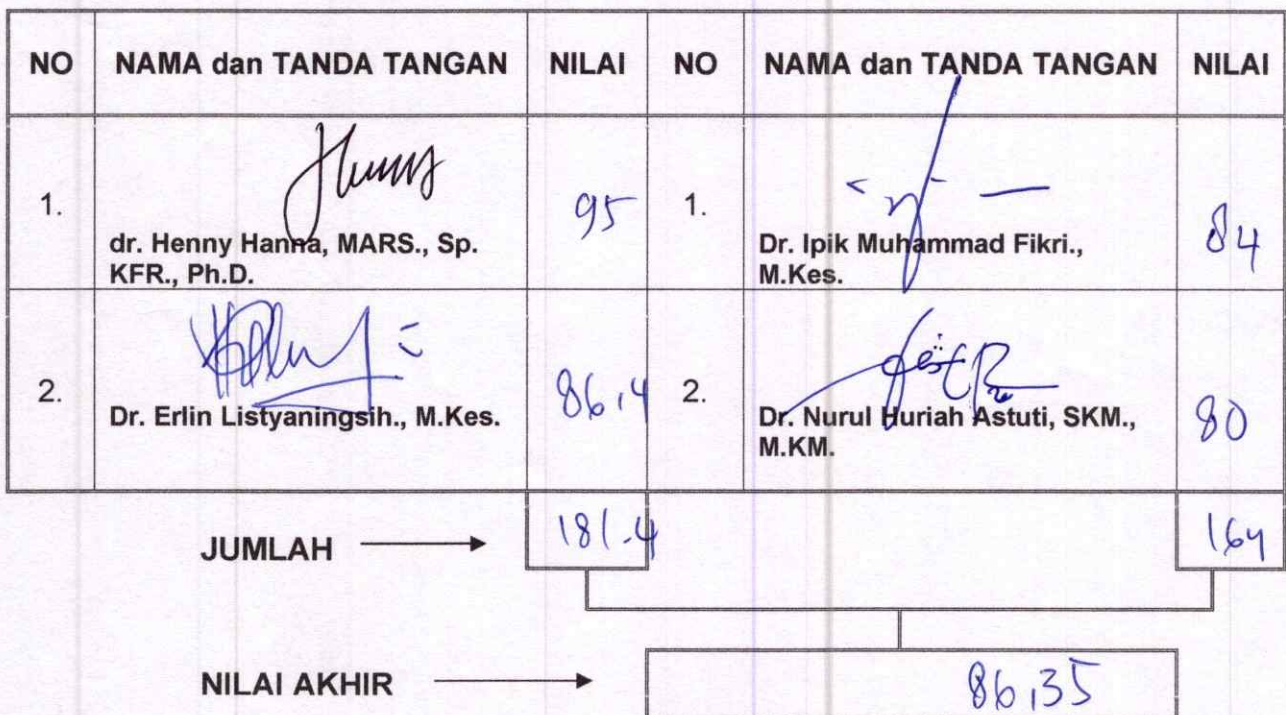 NO NAMA dan TANDA TANGAN NILAI NO NAMA dan TANDA TANGAN NILAI
1. dr. Henny Hanna, MARS., Sp. 95 1. Dr. Ipik Muhammad Fikri., 84
KFR., Ph.D. M.Kes.
2. Dr. Erlin Listyaningsih., M.Kes. 86,4 2. Dr. Nurul Huriah Astuti, SKM., 80
M.KM.
JUMLAH 181.4 164
NILAI AKHIR 86,35